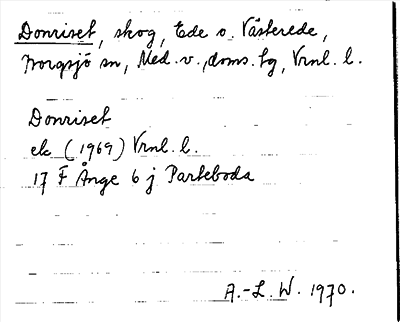 Donriset, skog, Ede o. Västerede,
Borgsjö sn, Med. v., doms. tg, Vrnl. l.
Donriset
ek (1969) Vrnl. l.
17 F Ånge 6 j Parteboda
A.-L. W. 1970.